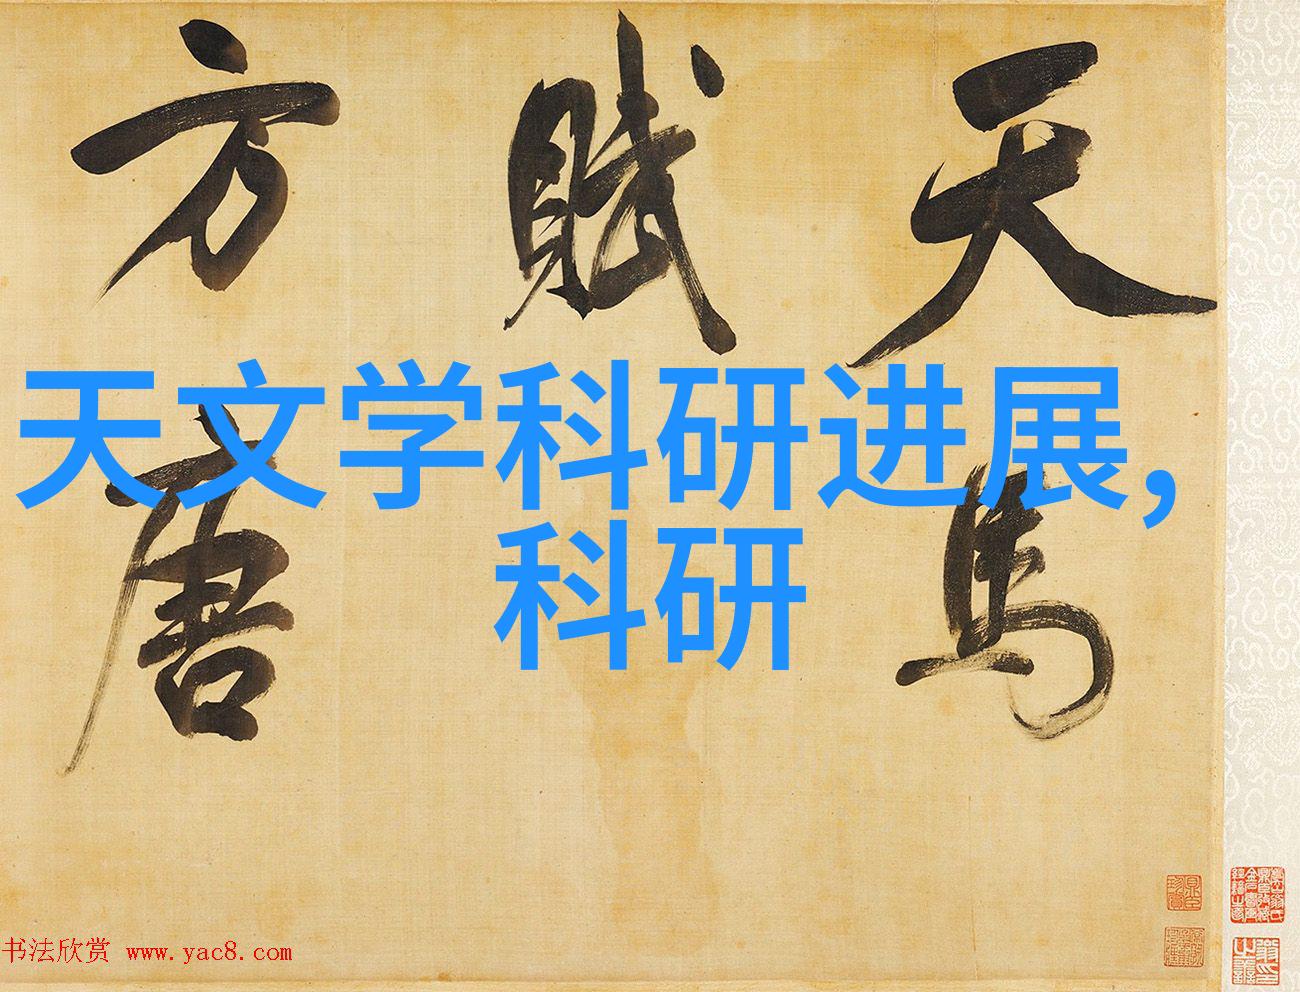 天马
赋
方唐
天文学科研进展,
科研
书法欣赏 www.yac8.com